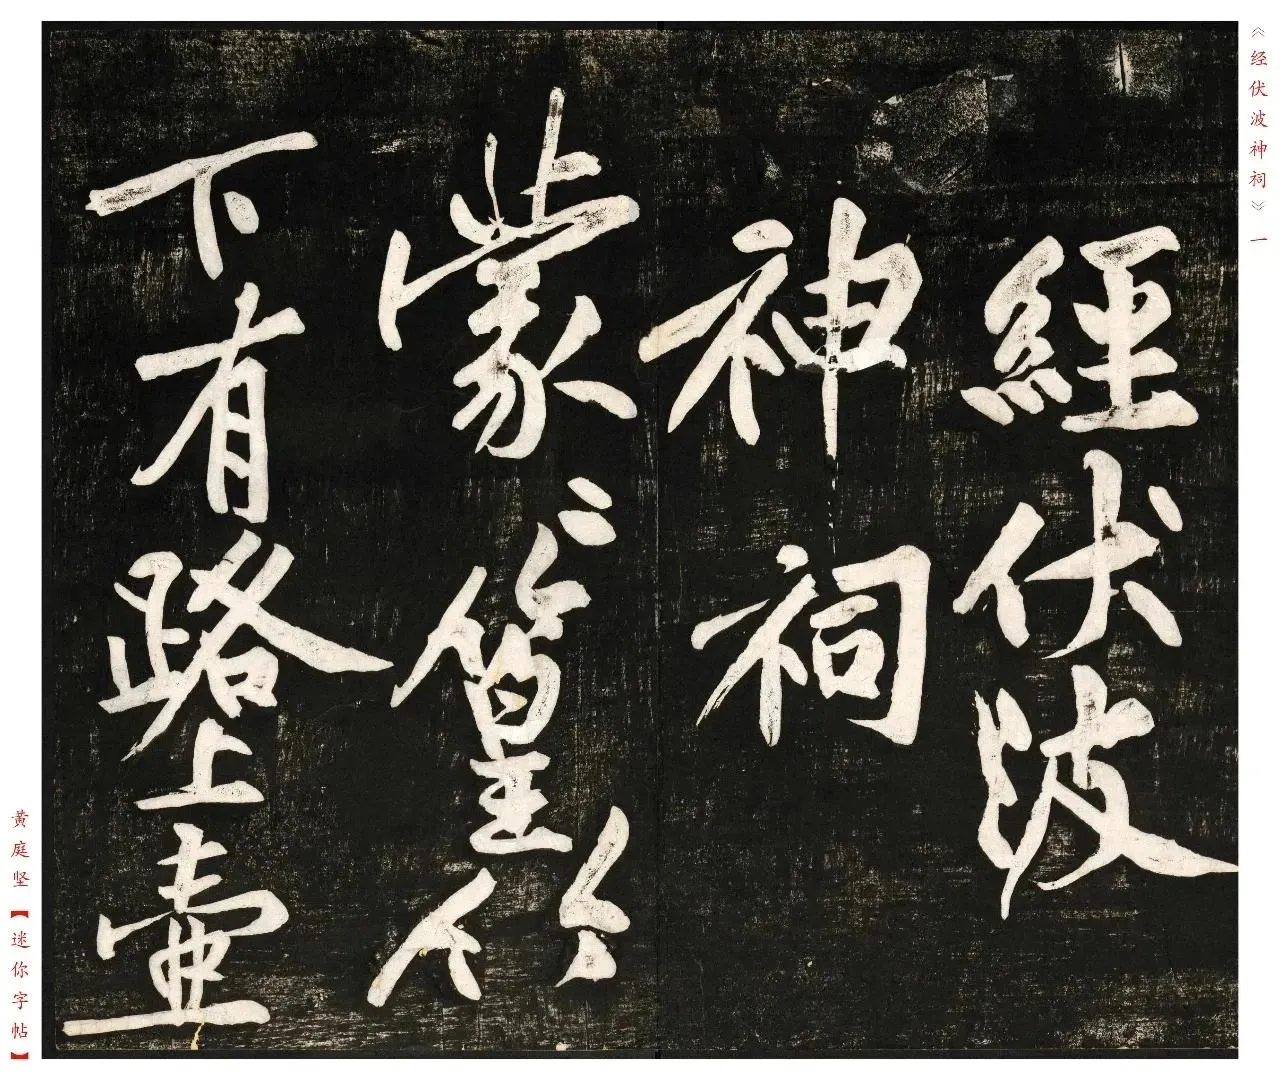 《经伏波神祠》一
經伏波
神祠
蒙〻篁竹
下有路上壷
黄庭坚【迷你字帖】